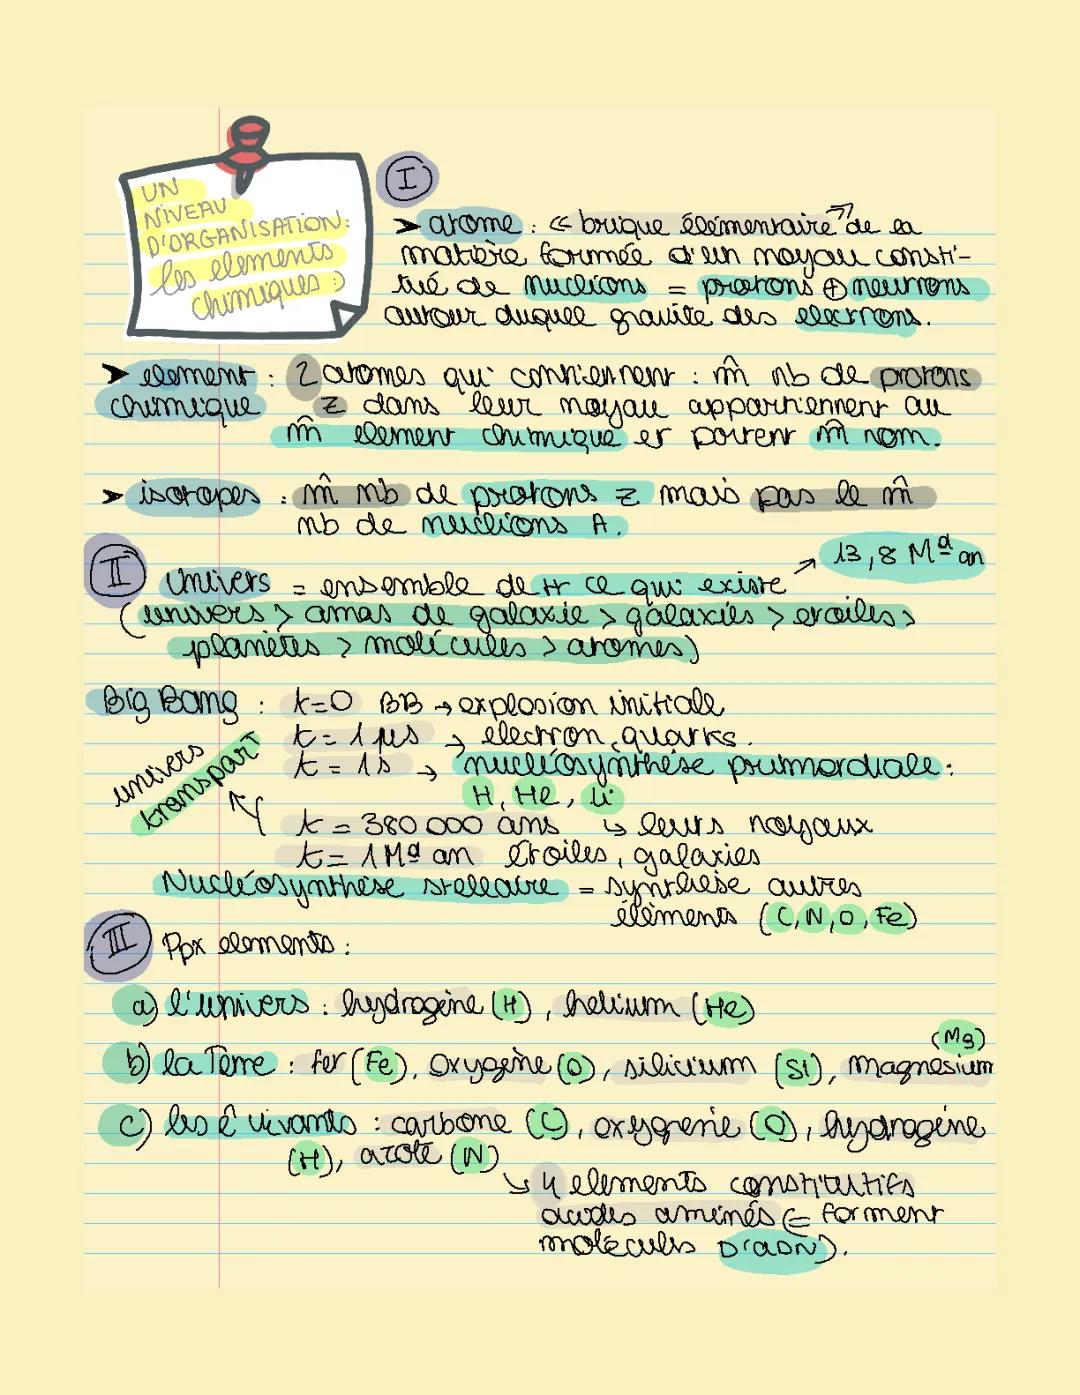 UN
NIVEAU
D'ORGANISATION:
les elements
chimiques :)
I
➤ atome : « brique élémentaire » de la
matière formée d'un noyau consti-
tué de nucléons = protons ⊕ neutrons
autour duquel gravite des electrons.
➤ element : 2 atomes qui contiennent : m̂ nb de protons
chimique Z dans leur noyau appartiennent au
m̂ element chimique et portent m̂ nom.
➤ isotopes : m̂ nb de protons Z mais pas le m̂
nb de nucléons A.
II Univers = ensemble de tt ce qui existe → 13,8 Mᵈ an
(univers > amas de galaxie > galaxies > etoiles >
planètes > molécules > atomes)
Big Bang : t=0 BB → explosion initiale
t = 1 µs → electron, quarks.
t = 1s → nucléosynthèse primordiale :
H, He, Li
univers
transpart
t = 380 000 ans ↳ leurs noyaux
t = 1 Mᵈ an étoiles, galaxies
Nucléosynthèse stellaire = synthèse autres
éléments (C, N, O, Fe)
III Ppx elements :
a) l'univers : hydrogène (H), helium (He)
b) la Terre : fer (Fe), oxygène (O), silicium (Si), magnésium
(Mg)
c) les ê vivants : carbone (C), oxygène (O), hydrogène
(H), azote (N)
↳ 4 elements constitutifs
acides aminés (= forment
molécules D'ADN).